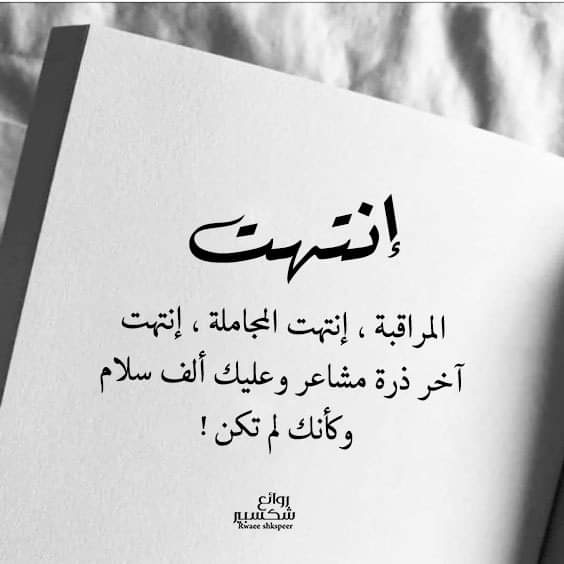 إنتهت
المراقبة ، إنتهت المجاملة ، إنتهت
آخر ذرة مشاعر وعليك ألف سلام
وكأنك لم تكن !
روائع
شكسبير
Rwaee shkspeer